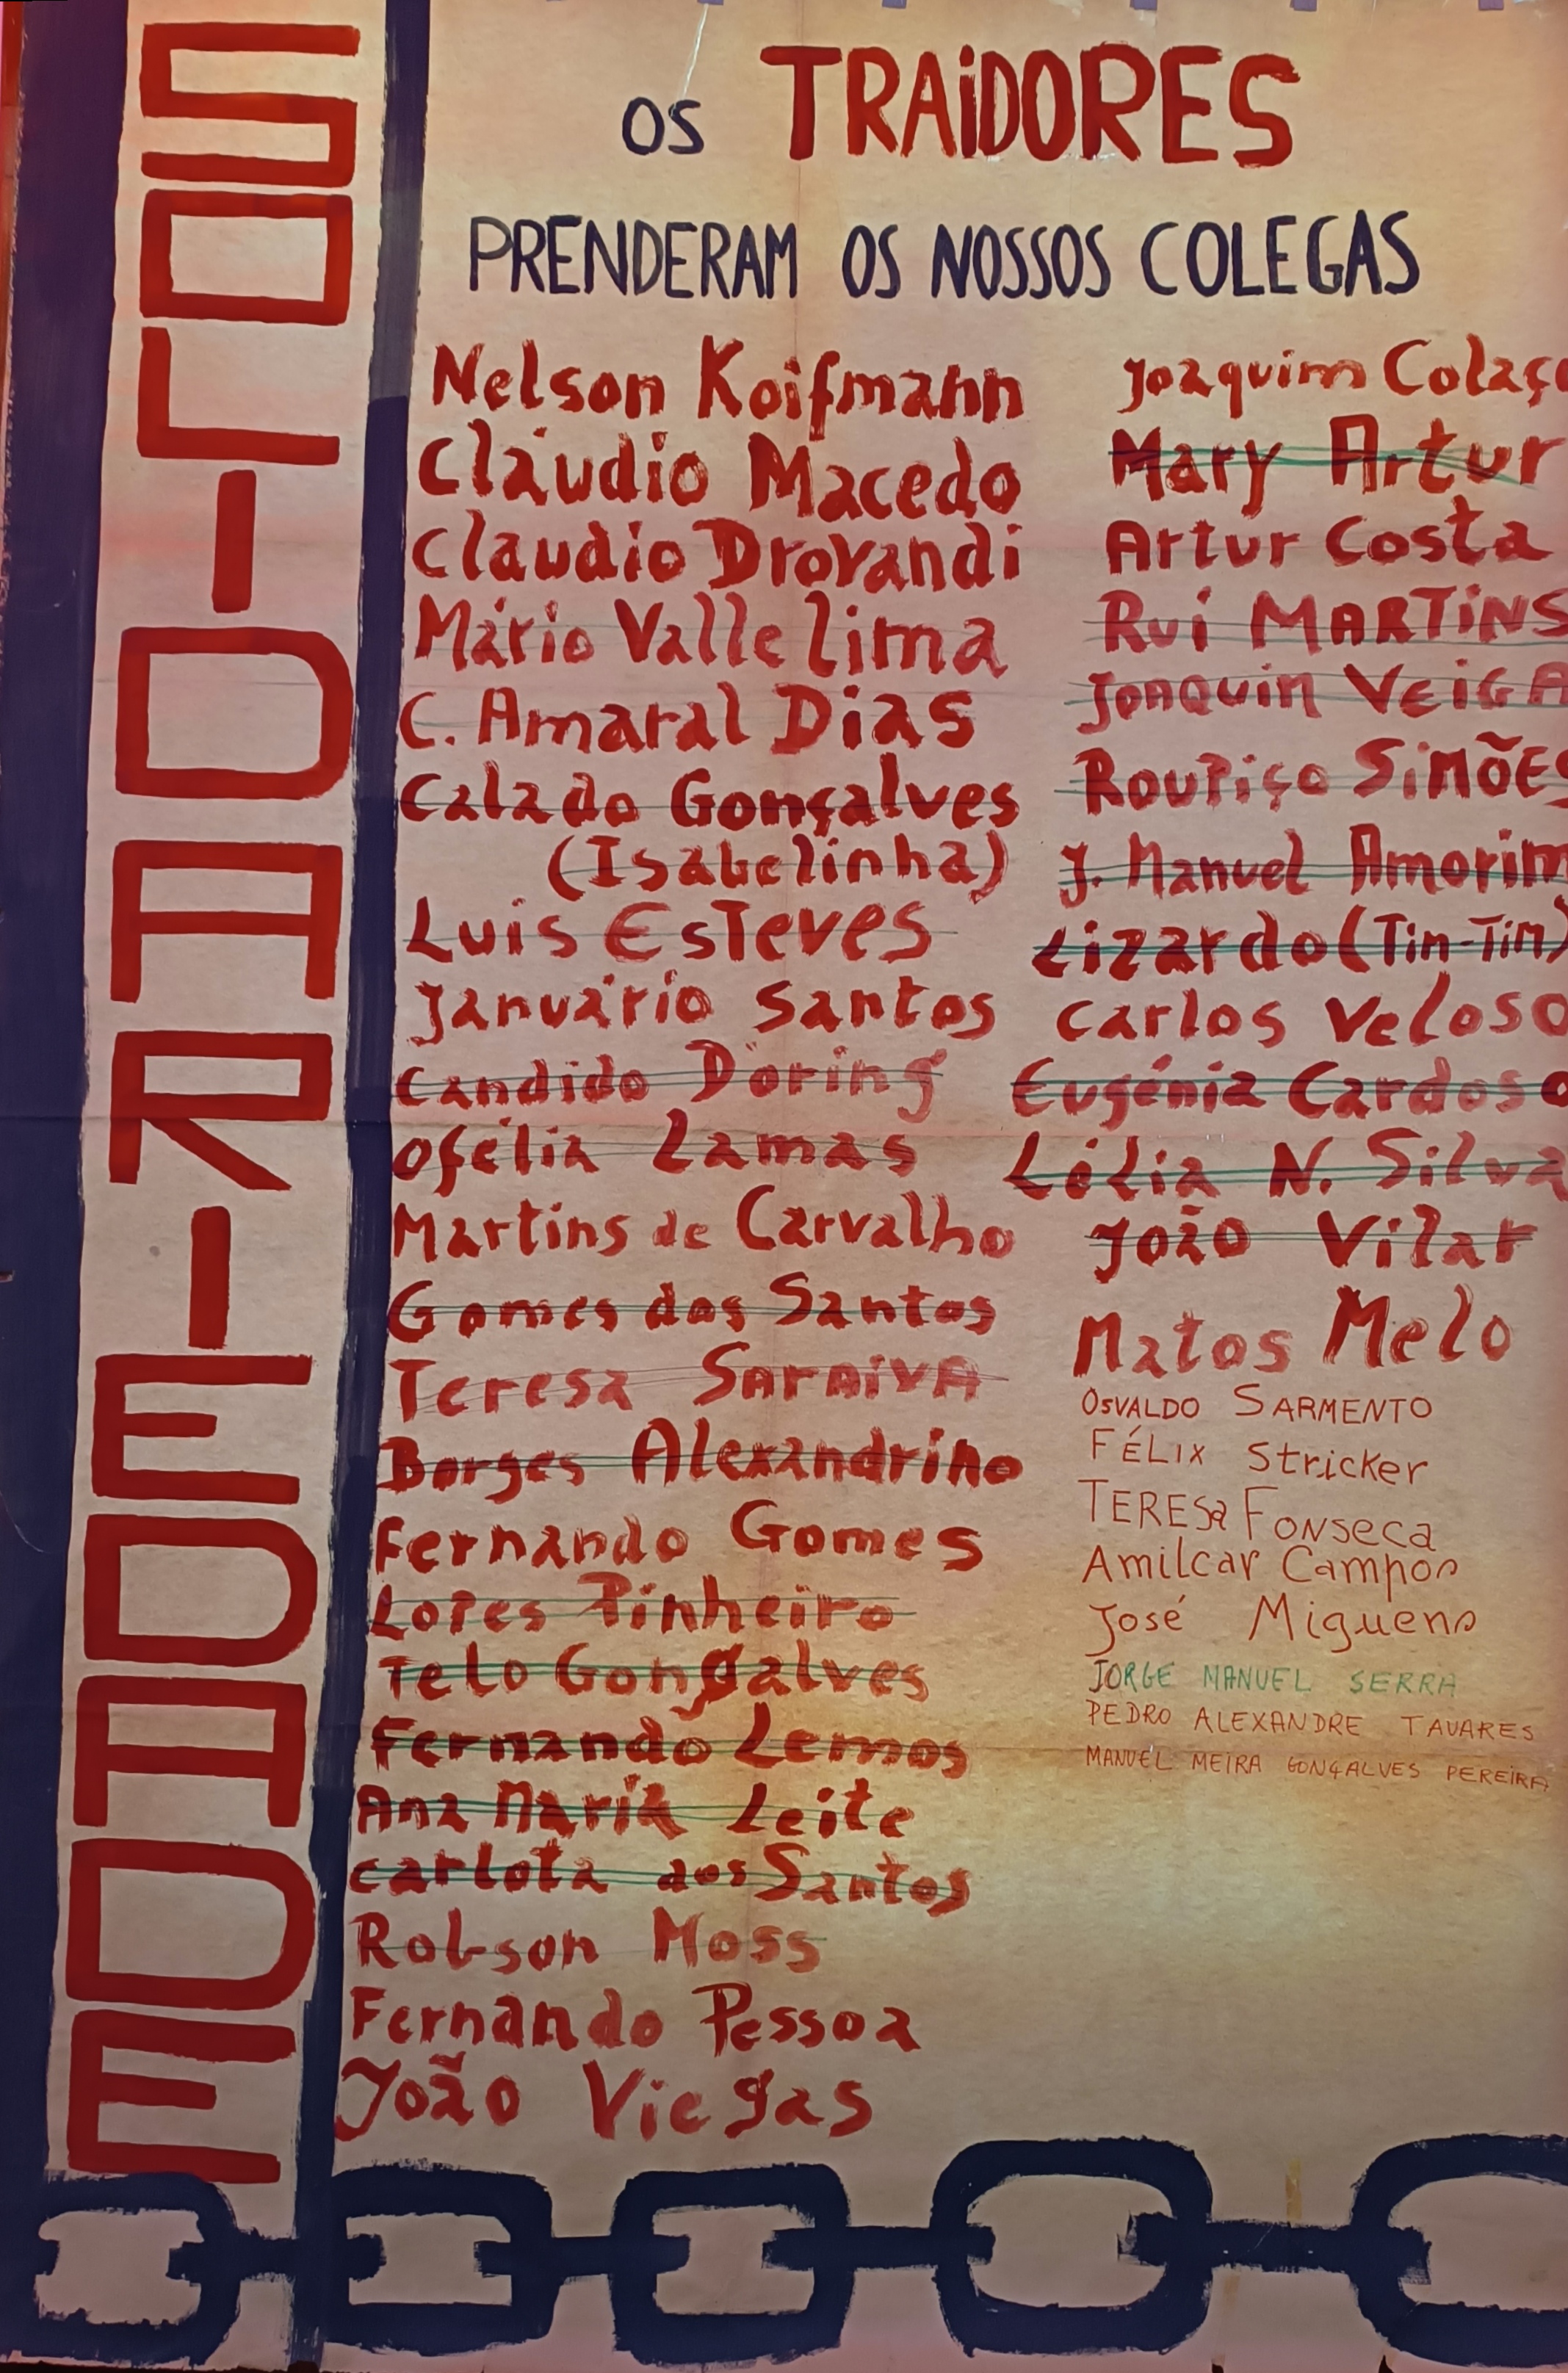 SOLIDARIEDADE
OS TRAiDORES
PRENDERAM OS NOSSOS COLEGAS
Nelson Koifmann
Cláudio Macedo
Claudio Drovandi
Mário Valle Lima
C. Amaral Dias
Calado Gonçalves
(Isabelinha)
Luis Esteves
Januário Santos
Candido Döring
Ofélia Lamas
Martins de Carvalho
Gomes dos Santos
Teresa Saraiva
Borges Alexandrino
Fernando Gomes
Lopes Pinheiro
Telo Gonçalves
Fernando Lemos
Ana Maria Leite
Carlota dos Santos
Robson Moss
Fernando Pessoa
João Viegas
Joaquim Colaço
Mary Artur
Artur Costa
Rui MARTiNS
Joaquin VEiGA
Roupiço SiMÕES
J. Manuel Amorim
Lizardo (Tim-Tim)
Carlos Veloso
Eugénia Cardoso
Lélia N. Silva
João Vilar
Matos Melo
OSVALDO SARMENTO
FÉLIX Stricker
TERESA FONSECA
Amilcar Campos
José Miguens
JORGE MANUEL SERRA
PEDRO ALEXANDRE TAVARES
MANUEL MEIRA GONÇALVES PEREIRA